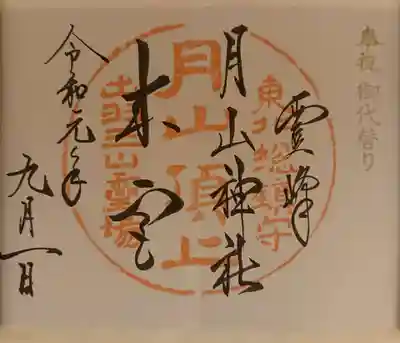 奉祝 御代替り
霊峰
東北総鎮守
月山神社
月山頂上
本宮
出羽三山霊場
令和元年
九月一日